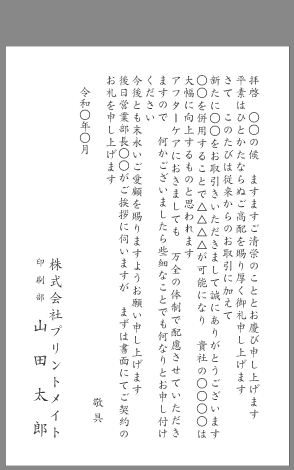 拝啓　〇〇の候　ますますご清栄のこととお慶び申し上げます
平素はひとかたならぬご高配を賜り厚く御礼申し上げます
さて　このたびは従来からのお取引に加えて
新たに〇〇をお取引きいただきまして誠にありがとうございます
〇〇を併用することで△△△△が可能になり　貴社の〇〇〇〇は
大幅に向上するものと思われます
アフターケアにおきましても　万全の体制で配慮させていただき
ますので　何かございましたら些細なことでも何なりとお申し付け
ください
今後とも末永いご愛顧を賜りますようお願い申し上げます
後日営業部長〇〇がご挨拶に伺いますが　まずは書面にてご契約の
お礼を申し上げます
敬具
令和〇年〇月
株式会社プリントメイト
印刷部　山田太郎